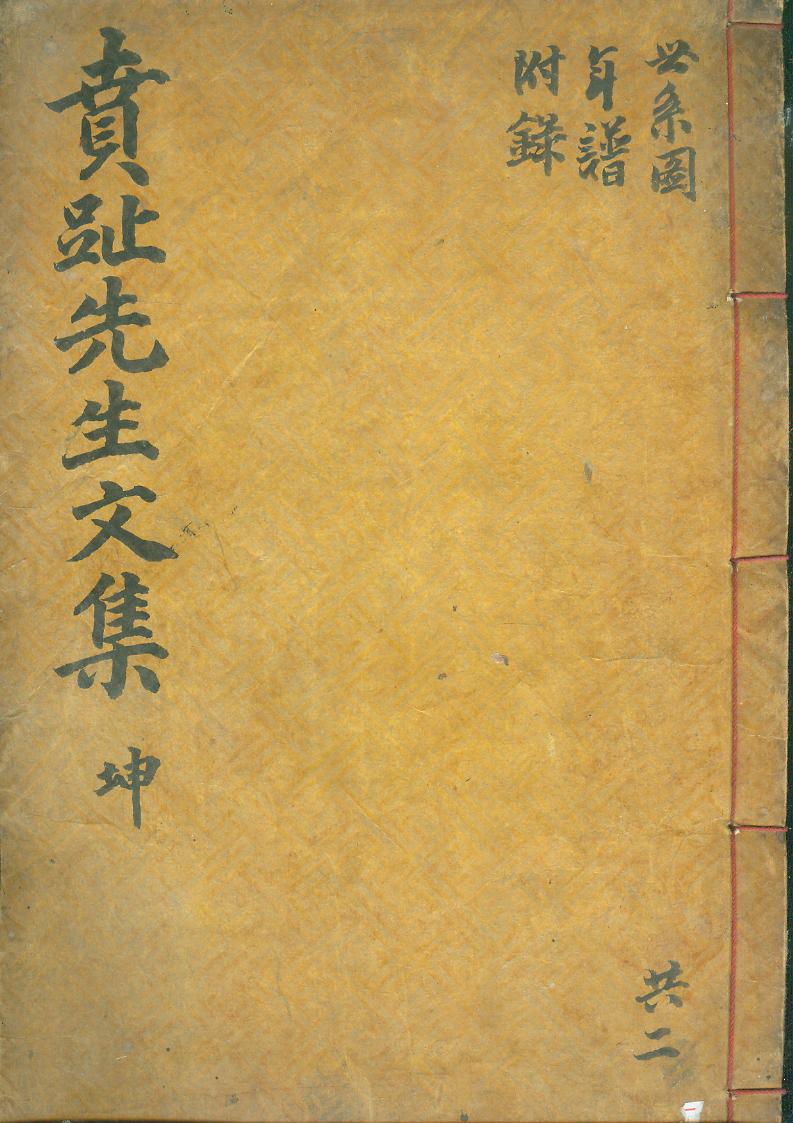 世系圖
年譜
附錄
共二
賁趾先生文集 坤